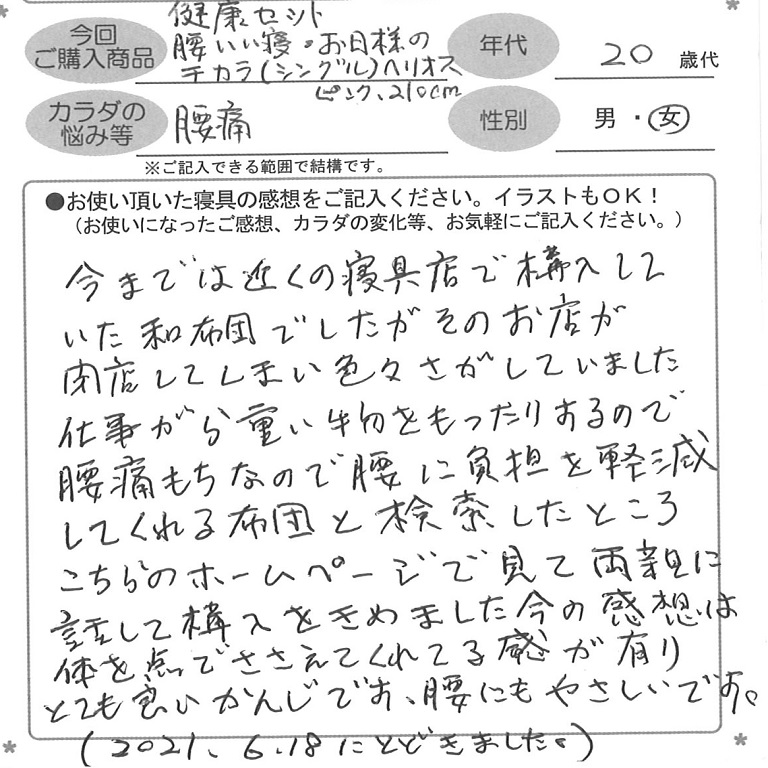 今回
ご購入商品
健康セット
腰いい寝・お日様の
チカラ(シングル)ヘリオス
ピンク、210cm
年代
20 歳代
カラダの
悩み等
腰痛
性別
男・女
※ご記入できる範囲で結構です。
●お使い頂いた寝具の感想をご記入ください。イラストもOK！
（お使いになったご感想、カラダの変化等、お気軽にご記入ください。）
今までは近くの寝具店で購入して
いた和布団でしたがそのお店が
閉店してしまい色々さがしていました
仕事がら重い物をもったりするので
腰痛もちなので腰に負担を軽減
してくれる布団と検索したところ
こちらのホームページで見て両親に
話して購入をきめました今の感想は
体を点でささえてくれてる感が有り
とても良いかんじです、腰にもやさしいです。
(2021、6.18にとどきました。)